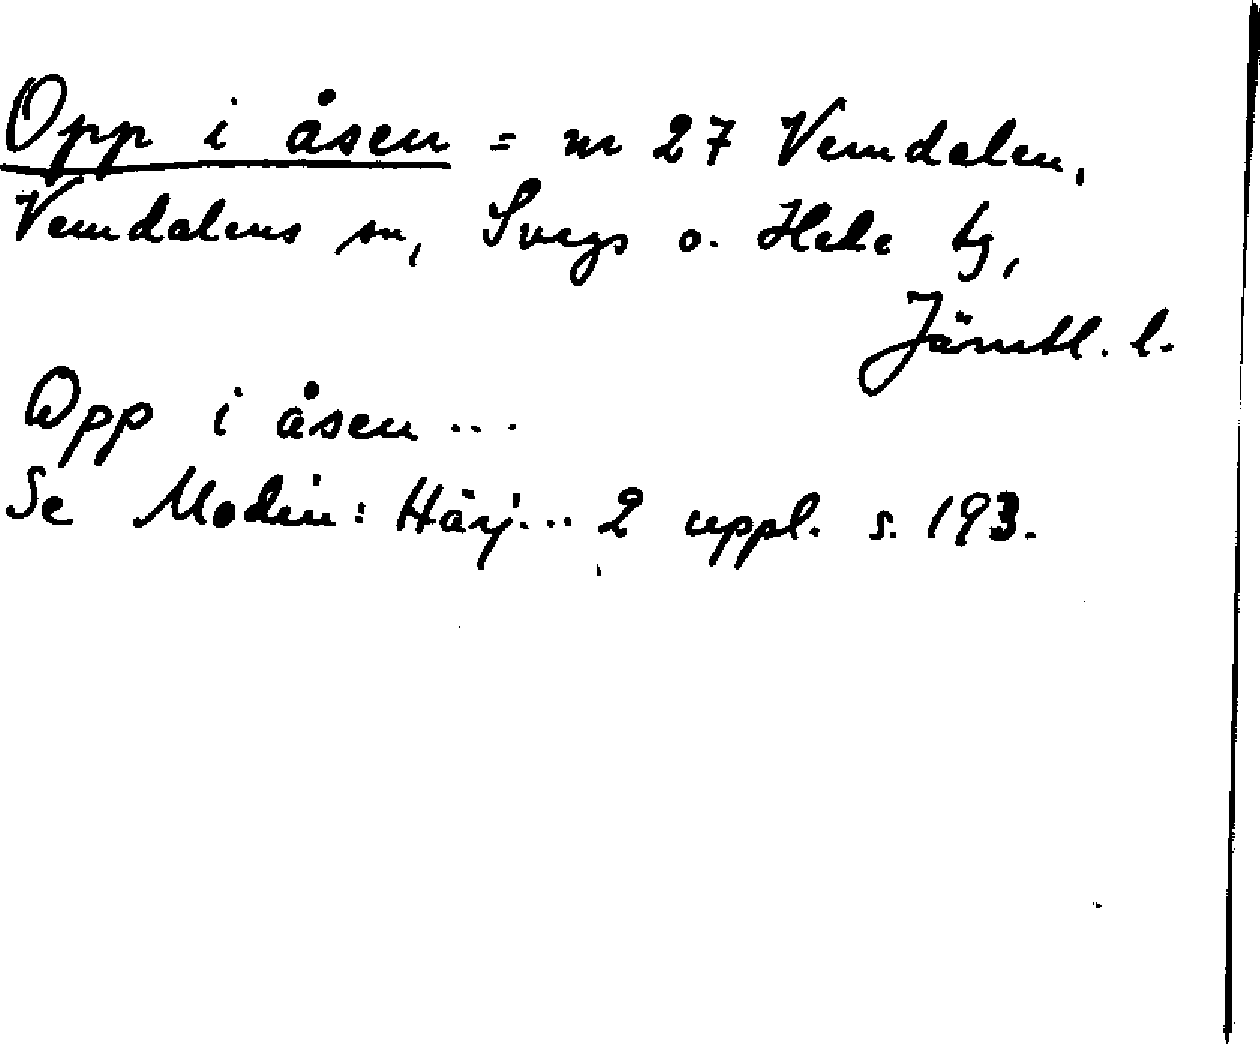 Opp i åsen = nr 27 Vemdalen,
Vemdalens sn, Svegs o. Hede tg,
Jämtl. l.
Opp i åsen ...
Se Modin: Härj... 2 uppl. s. 193.